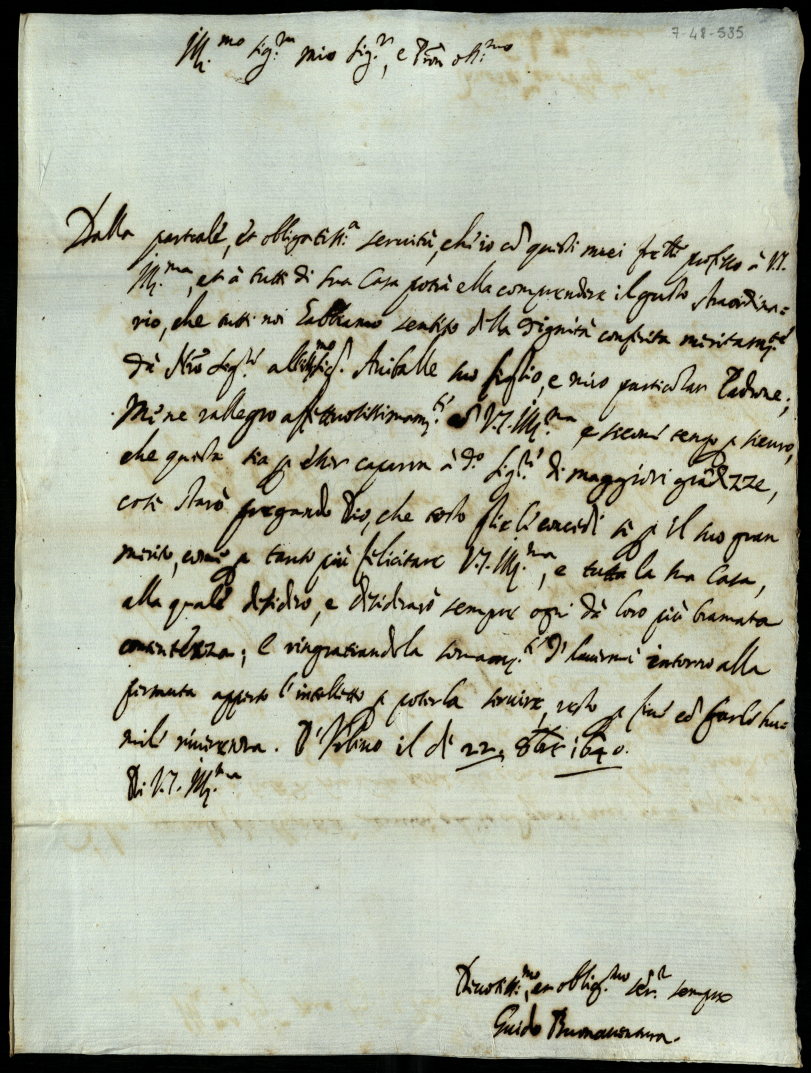 7-48-535
Ill.mo Sig.re mio Sig.r, e Pron oss.mo
Dalla partiale, et obligatiss.a servitù, ch'io cō questi miei fratti professo à V.S.
Ill.ma, et à tutti di sua Casa potrà ella comprendere il gusto straordina=
rio, che tutti noi habbiamo sentito della dignità conferita meritam.te
dà Nrō Sig.re all'Ill.mo Sig.r Anibale suo figlio, e mio particolar Padrone;
Mi ne rallegro affettuosissimam.te V.S. Ill.ma, e sicome tengo p sicuro,
che questa sia p esser caparra à d.o Sig.re di maggiori grādezze,
così starò pregando Dio, che tosto gli le concedi sì p il suo gran
merito, come p tanto più felicitare V.S. Ill.ma, e tutta la sua Casa,
alla quale desidero, e desiderarò sempre ogni dà loro più bramata
contentezza; e ringratiandola somam.te d'havermi intorno alla
fermata aperto l'intelletto p poterla servire, resto p fine cō farle hu=
mile riverenza. D' il dì 22. 8bre 1640.
Di V.S. Ill.ma
Devotiss.mo, et oblig.mo ser.r sempre
Guido Buonaventura.